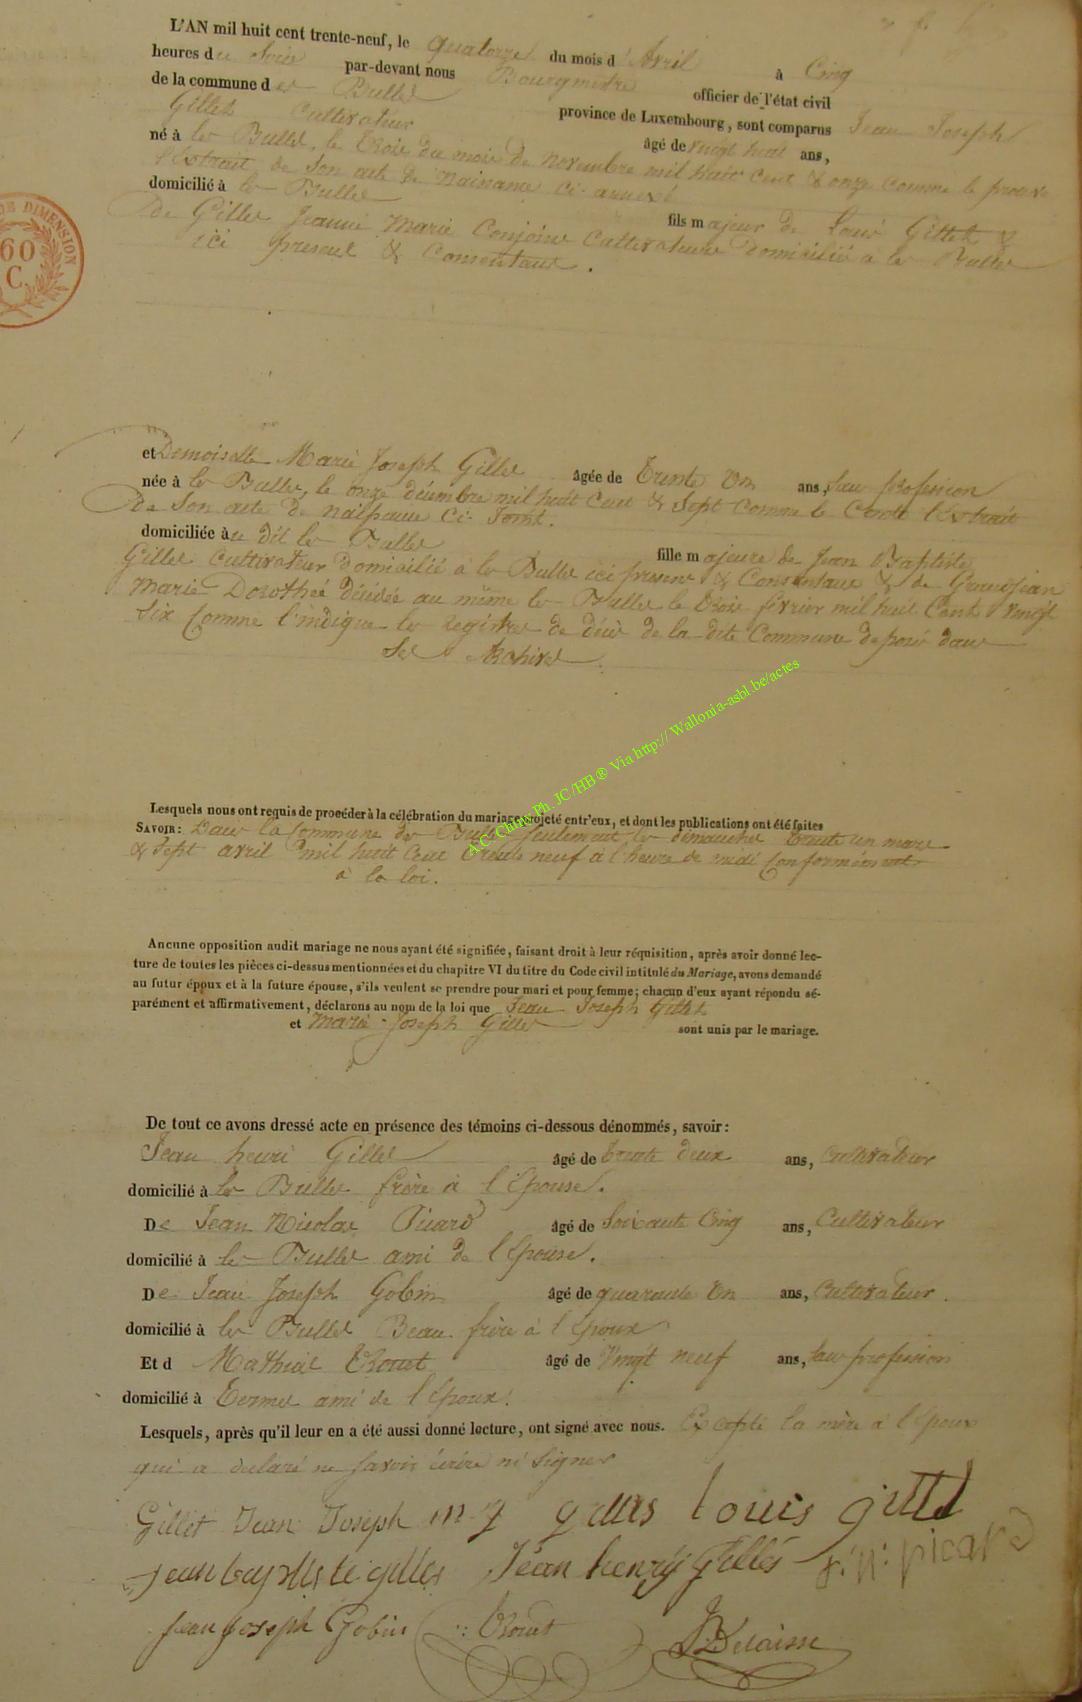 L'AN mil huit cent trente-neuf, le quatorze du mois d'Avril à Cinq
heures du Soir par-devant nous Bourgmestre officier de l'état civil
de la commune des Bulles province de Luxembourg, sont comparus Jean Joseph
Gillet Cultivateur âgé de vingt huit ans,
né à les Bulles, le trois du mois de novembre mil huit cent & onze comme le prouve
l'Extrait de son acte de naissance ci-annexé
domicilié à les Bulles fils majeur de Louis Gillet &
de Gilles Jeanne Marie Conjoins Cultivateurs domiciliés à les Bulles
ici présent & Consentant.
DE DIMENSION
60
C.
et Demoiselle Marie Joseph Gilles âgée de trente un ans, sans profession
née à les Bulles, le onze décembre mil huit cent & sept comme le Conste l'Extrait
de son acte de naissance ci-joint.
domiciliée au dit les Bulles fille majeure de Jean Baptiste
Gilles Cultivateur domicilié à les Bulles ici présent & Consentant & de Grandjean
Marie Dorothée décédée au même les Bulles le trois février mil huit Cent vingt
Six Comme l'indique les registres de décès de la dite Commune déposé dans
Ses Archives.
A.C. Chiny Ph. JC/HB ® Via http:// Wallonia-asbl.be/actes
Lesquels nous ont requis de procéder à la célébration du mariage projeté entr'eux, et dont les publications ont été faites
SAVOIR: Dans la Commune des Bulles seulement les dimanches trente un mars
& sept avril mil huit cent trente neuf à l'heure de midi Conformément
à la loi.
Aucune opposition audit mariage ne nous ayant été signifiée, faisant droit à leur réquisition, après avoir donné lec-
ture de toutes les pièces ci-dessus mentionnées et du chapitre VI du titre du Code civil intitulé du Mariage, avons demandé
au futur époux et à la future épouse, s'ils veulent se prendre pour mari et pour femme; chacun d'eux ayant répondu sé-
parément et affirmativement, déclarons au nom de la loi que Jean Joseph Gillet
et Marie Joseph Gilles sont unis par le mariage.
De tout ce avons dressé acte en présence des témoins ci-dessous dénommés, savoir:
Jean henri Gilles âgé de trente deux ans, Cultivateur
domicilié à les Bulles frère à l'Épouse.
De Jean Nicolas Picard âgé de Soixante Cinq ans, Cultivateur
domicilié à les Bulles ami de l'Épouse.
De Jean Joseph Gobin âgé de quarante un ans, Cultivateur.
domicilié à les Bulles Beau-frère à l'Époux
Et d Mathias Trouet âgé de Vingt neuf ans, sans profession
domicilié à Termes ami de l'Époux.
Lesquels, après qu'il leur en a été aussi donné lecture, ont signé avec nous. Excepté la mère à l'Époux
qui a déclaré ne savoir écrire ni signer
Gillet Jean Joseph m j gilles louis gillet
jean baptiste gilles Jean henry Gilles j: n: picard
jean joseph Gobin Trouet